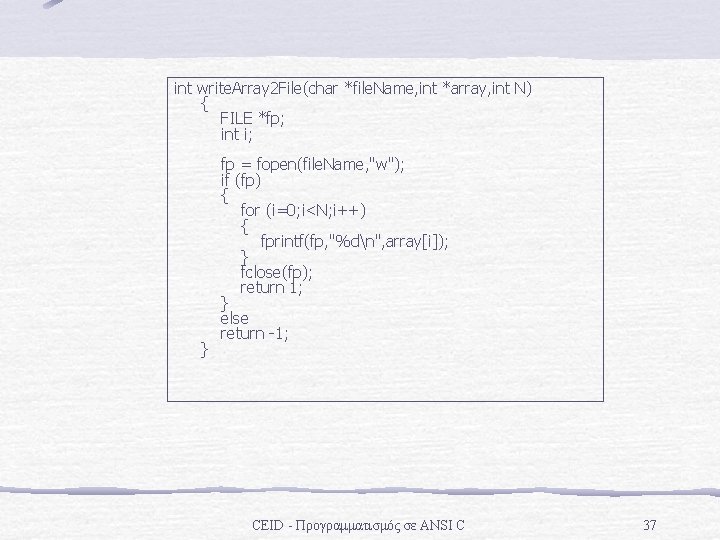 int write.Array2File(char *file.Name,int *array,int N)
{
FILE *fp;
int i;
fp = fopen(file.Name,"w");
if (fp)
{
for (i=0;i<N;i++)
{
fprintf(fp,"%d\n",array[i]);
}
fclose(fp);
return 1;
}
else
return -1;
}
CEID - Προγραμματισμός σε ANSI C
37